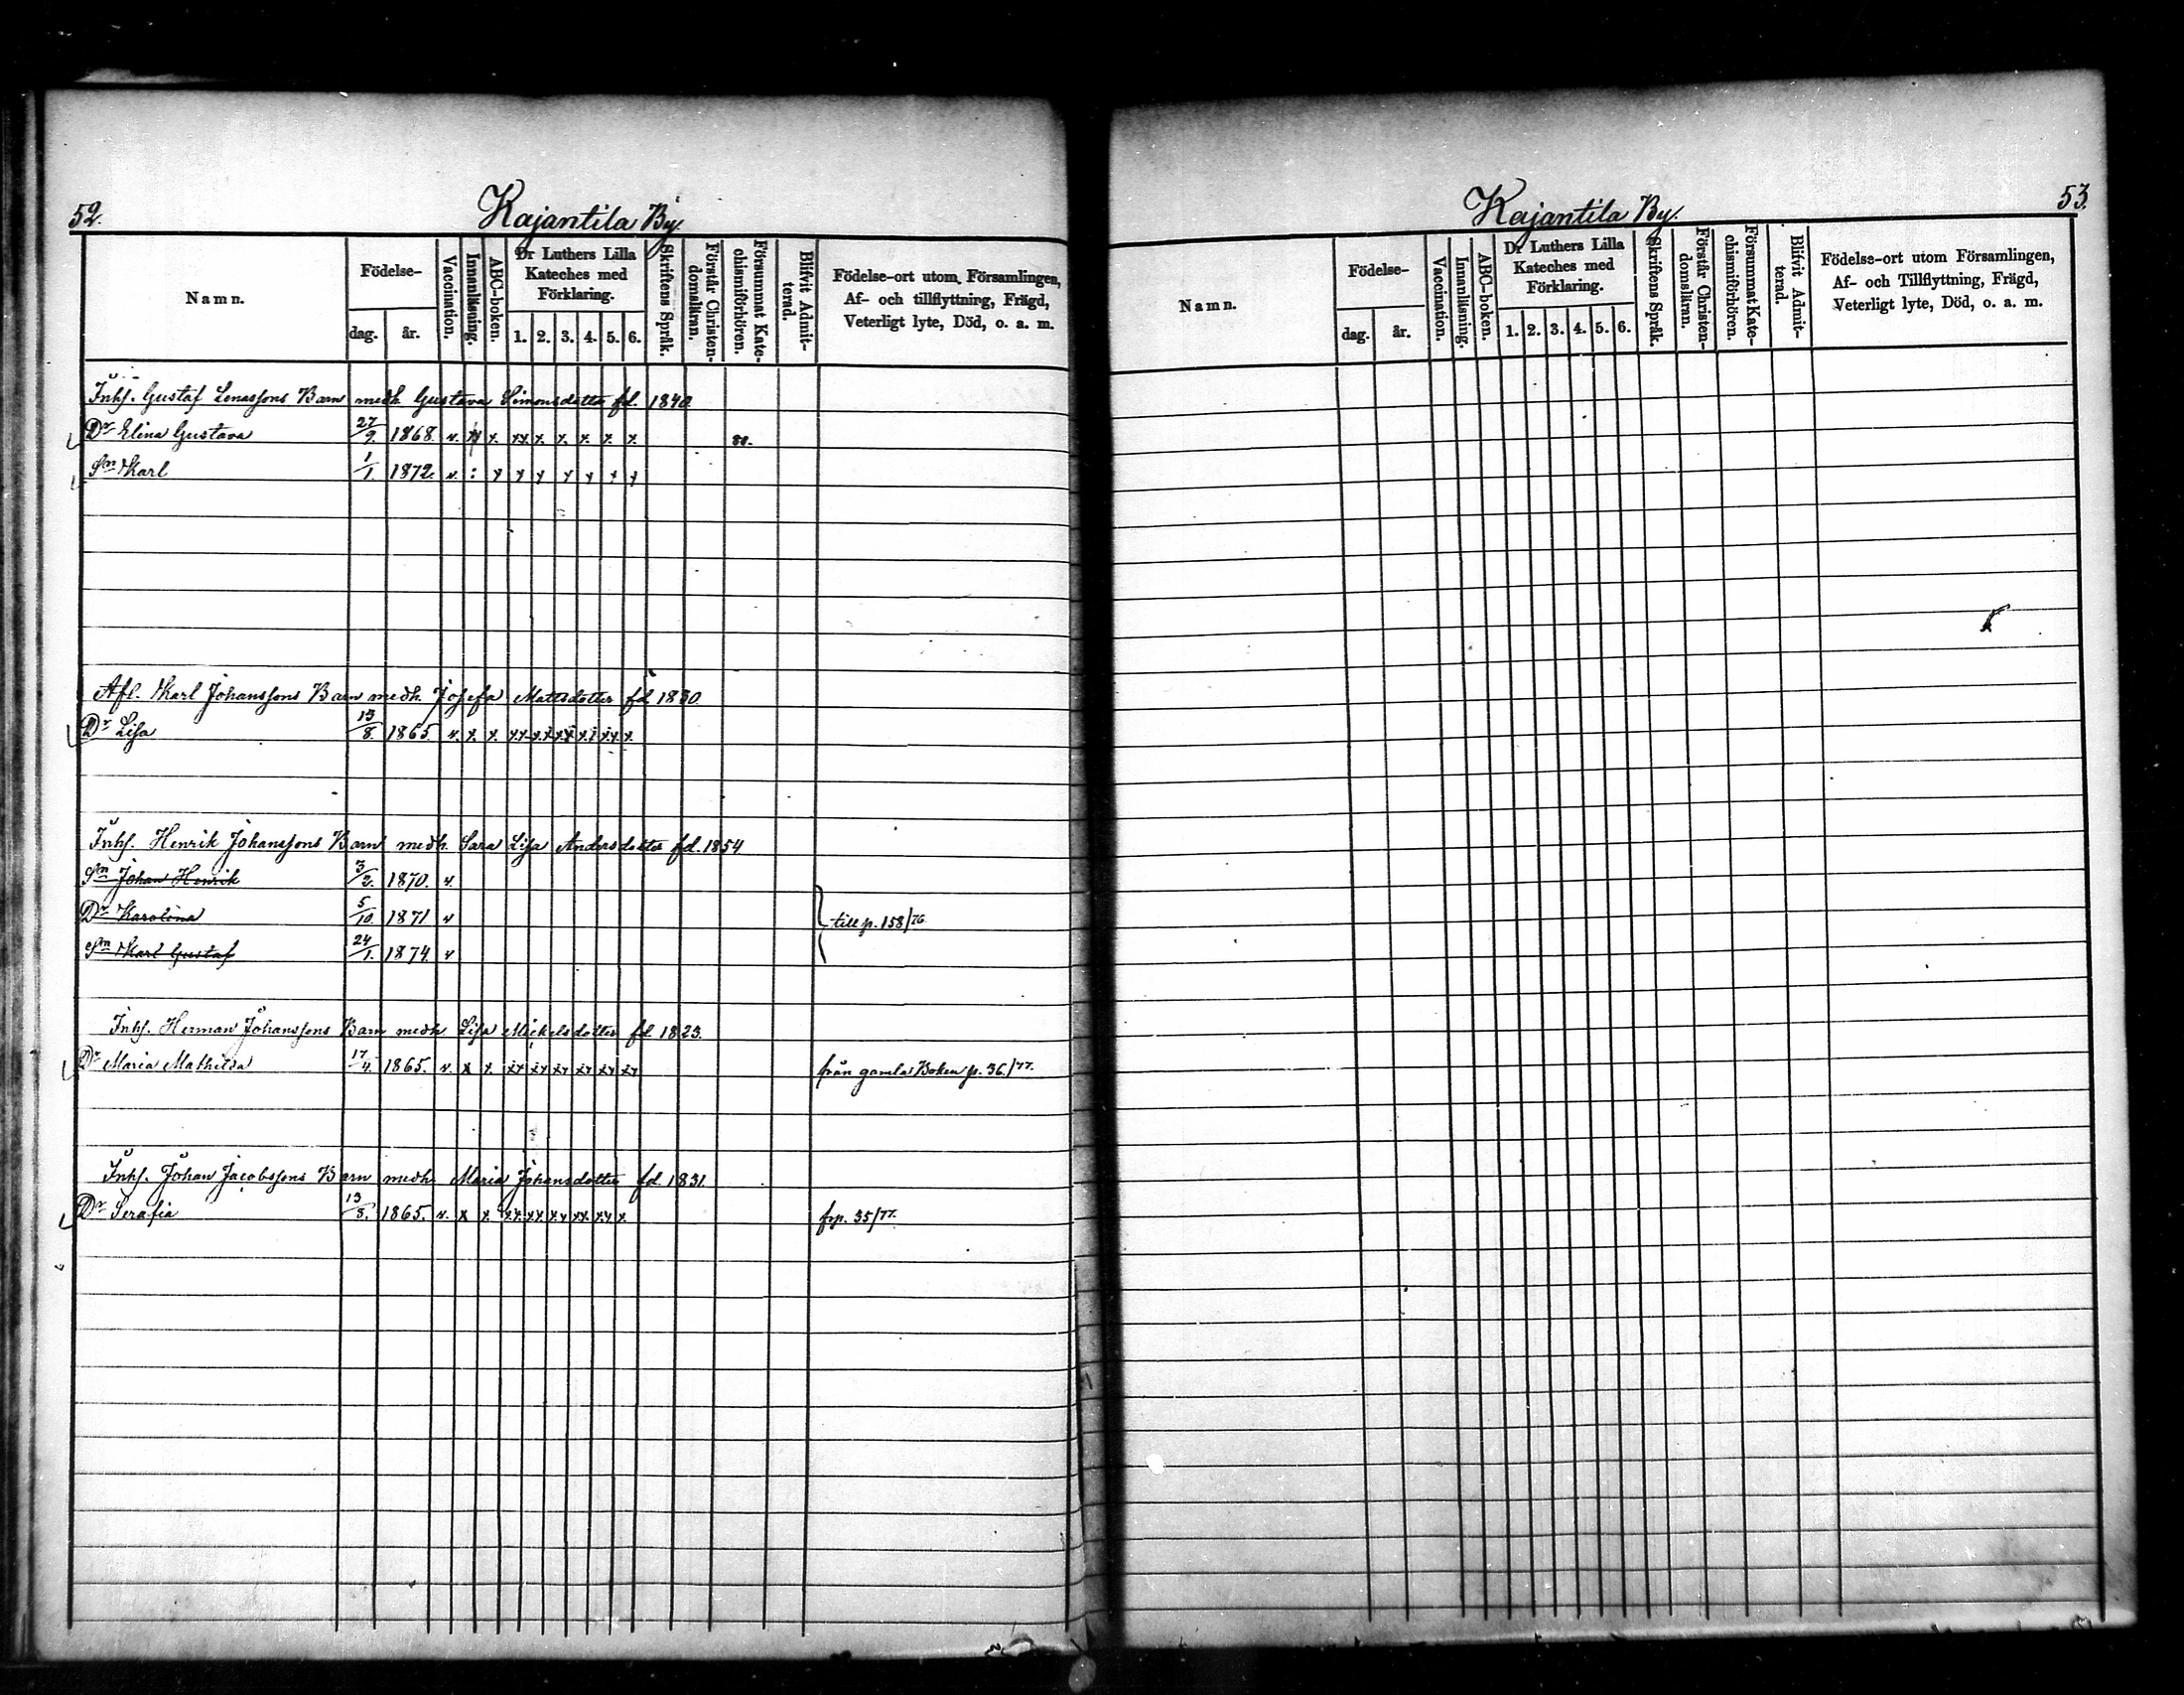 52.
Kajantila By.
Namn.
Födelse-
dag.
år.
Vaccination.
Innanläsning.
ABC-boken.
Dr Luthers Lilla
Kateches med
Förklaring.
1. 2. 3. 4. 5. 6.
Skriftens Språk.
Förstår Christen-
domsläran.
Försummat Kate-
chismiförhören.
Blifvit Admit-
terad.
Födelse-ort utom Församlingen,
Af- och tillflyttning, Frägd,
Veterligt lyte, Död, o. a. m.
Inhs. Gustaf Lenassons Barn medh. Gustava Simonsdotter fd. 1840.
Dr Elina Gustava 27/9. 1868. v. x. xx x. x. x. x. x. 80.
Sn Karl 1/1. 1872. v. : x x x x x x x
Afl. Karl Johanssons Barn medh. Josefa Mattsdotter fd. 1830.
Dr Lisa 13/8. 1865. v. x. x. xx xx xx xx xx x.
Inhs. Henrik Johanssons Barn medh. Sara Lisa Andersdotter fd. 1854
Sn Johan Henrik 3/2. 1870. v.
Dr Karolina 5/10. 1871 v
till p. 158/76
Sn Karl Gustaf 24/1. 1874. v
Inhs. Herman Johanssons Barn medh. Lisa Mickelsdotter fd. 1823.
Dr Maria Mathilda 17/4. 1865. v. x x. xx xx xx xx xx xx från gamla Boken p. 36./77.
Inhs. Johan Jacobssons Barn medh. Maria Johansdotter fd. 1831.
Dr Serafia 13/8. 1865. v. x x. xx. xx. xx xx xx x. frp. 35/77.
53.
Kajantila By.
Namn.
Födelse-
dag.
år.
Vaccination.
Innanläsning.
ABC-boken.
Dr Luthers Lilla
Kateches med
Förklaring.
1. 2. 3. 4. 5. 6.
Skriftens Språk.
Förstår Christen-
domsläran.
Försummat Kate-
chismiförhören.
Blifvit Admit-
terad.
Födelse-ort utom Församlingen,
Af- och Tillflyttning, Frägd,
Veterligt lyte, Död, o. a. m.